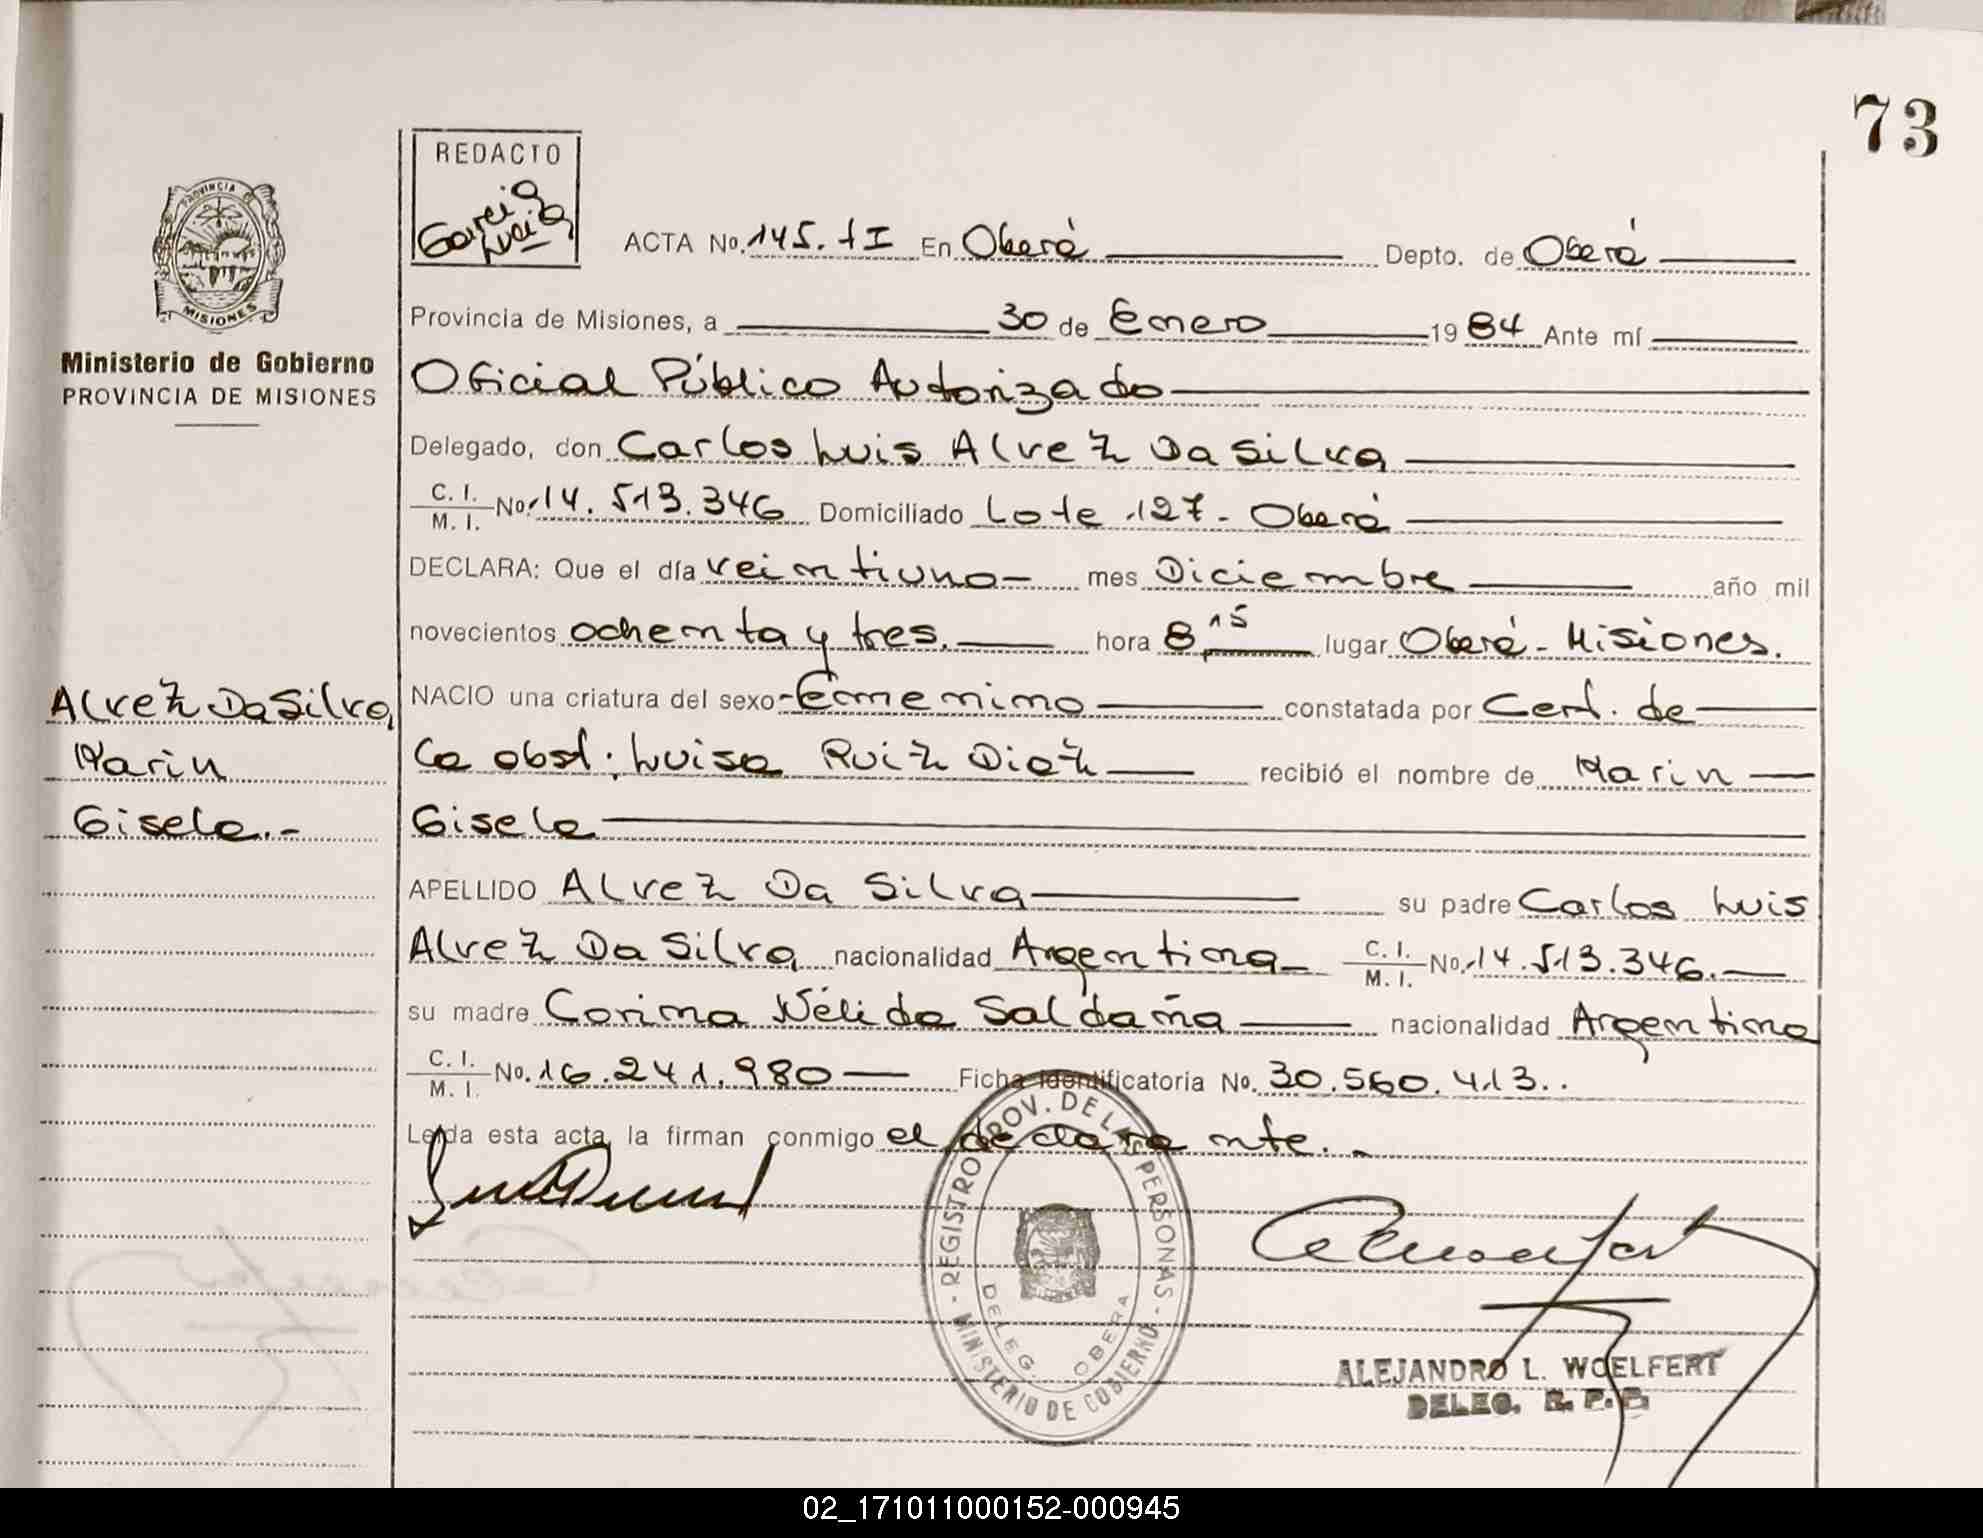 73
REDACTO
Garcia
Lucia
PROVINCIA
MISIONES
Ministerio de Gobierno
PROVINCIA DE MISIONES
ACTA No. 145. tI En Oberá Depto. de Oberá
Provincia de Misiones, a 30 de Enero 1984 Ante mí
Oficial Público Autorizado
Delegado, don Carlos Luis Alvez Da Silva
C. I. / M. I. No. 14.513.346 Domiciliado Lote 127 - Oberá
DECLARA: Que el día veintiuno - mes Diciembre año mil
novecientos ochenta y tres. hora 8,15 lugar Oberá - Misiones.
NACIO una criatura del sexo Femenino constatada por Cert. de
la obst. Luisa Ruiz Diaz recibió el nombre de Marin
Gisela
APELLIDO Alvez Da Silva su padre Carlos Luis
Alvez Da Silva nacionalidad Argentina C. I. / M. I. No. 14.513.346.
su madre Corina Nélida Saldaña nacionalidad Argentina
C. I. / M. I. No. 16.241.980 Ficha Identificatoria No. 30.560.413..
Leída esta acta, la firman conmigo el declarante. -
Alvez Da Silva,
Marin
Gisela.-
REGISTRO PROV. DE LAS PERSONAS - MINISTERIO DE GOBIERNO -
DELEG. OBERA
ALEJANDRO L. WOELFERT
DELEG. R. P. P.
02_171011000152-000945